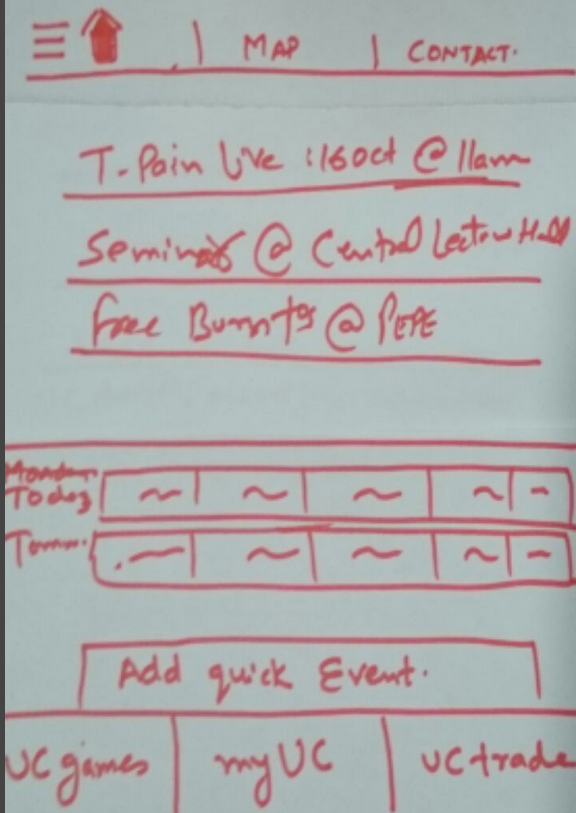 MAP | CONTACT.
T-Pain Live : 16 Oct @ 11am
Seminar @ Central Lecture Hall
Free Burritos @ PEPE
Monday
Today
Tomm.
Add quick Event.
UC games myUC UC trade